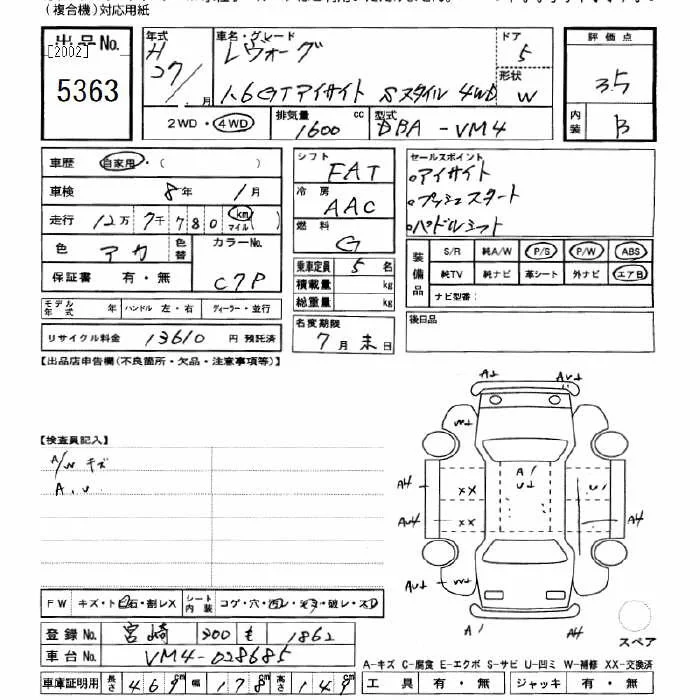 (複合機)対応用紙
出品No.
[2002]
5363
年式
H
27/
月
車名・グレード
レヴォーグ
1.6GTアイサイト Sスタイル 4WD
ドア
5
形状
W
評価点
3.5
内装
B
2WD・4WD
排気量
1600
cc
型式
DBA-VM4
車歴 自家用・( )
車検 8年 1月
走行 12万 7千 780 km マイル ( )
色 アカ 色替
カラーNo.
C7P
保証書 有・無
モデル年式 年 ハンドル 左・右 ディーラー・並行
リサイクル料金 13610 円 預託済
シフト
FAT
冷房
AAC
燃料
G
乗車定員 5 名
積載量 kg
総重量 kg
名変期限
7月末日
セールスポイント
アイサイト
プッシュスタート
パドルシフト
装備品
S/R 純A/W P/S P/W ABS
純TV 純ナビ 革シート 外ナビ エアB
ナビ型番:
後日品
【出品店申告欄(不良箇所・欠品・注意事項等)】
【検査員記入】
A/W キズ
A, U
FW キズ・ト石・割レX
シート内装 コゲ・穴・汚レ・・破レ・スレ
登録No. 宮崎 300 も 1862
車台No. VM4-028685
車庫証明用 長さ 469 幅 178 高さ 149
A↓
AU↓
W↓
A1
U↓
A4
XX
AU4
XX
A4
AU↓
W↓
A4
スペア
A-キズ C-腐食 E-エクボ S-サビ U-凹ミ W-補修 XX-交換済
工具 有・無 ジャッキ 有・無